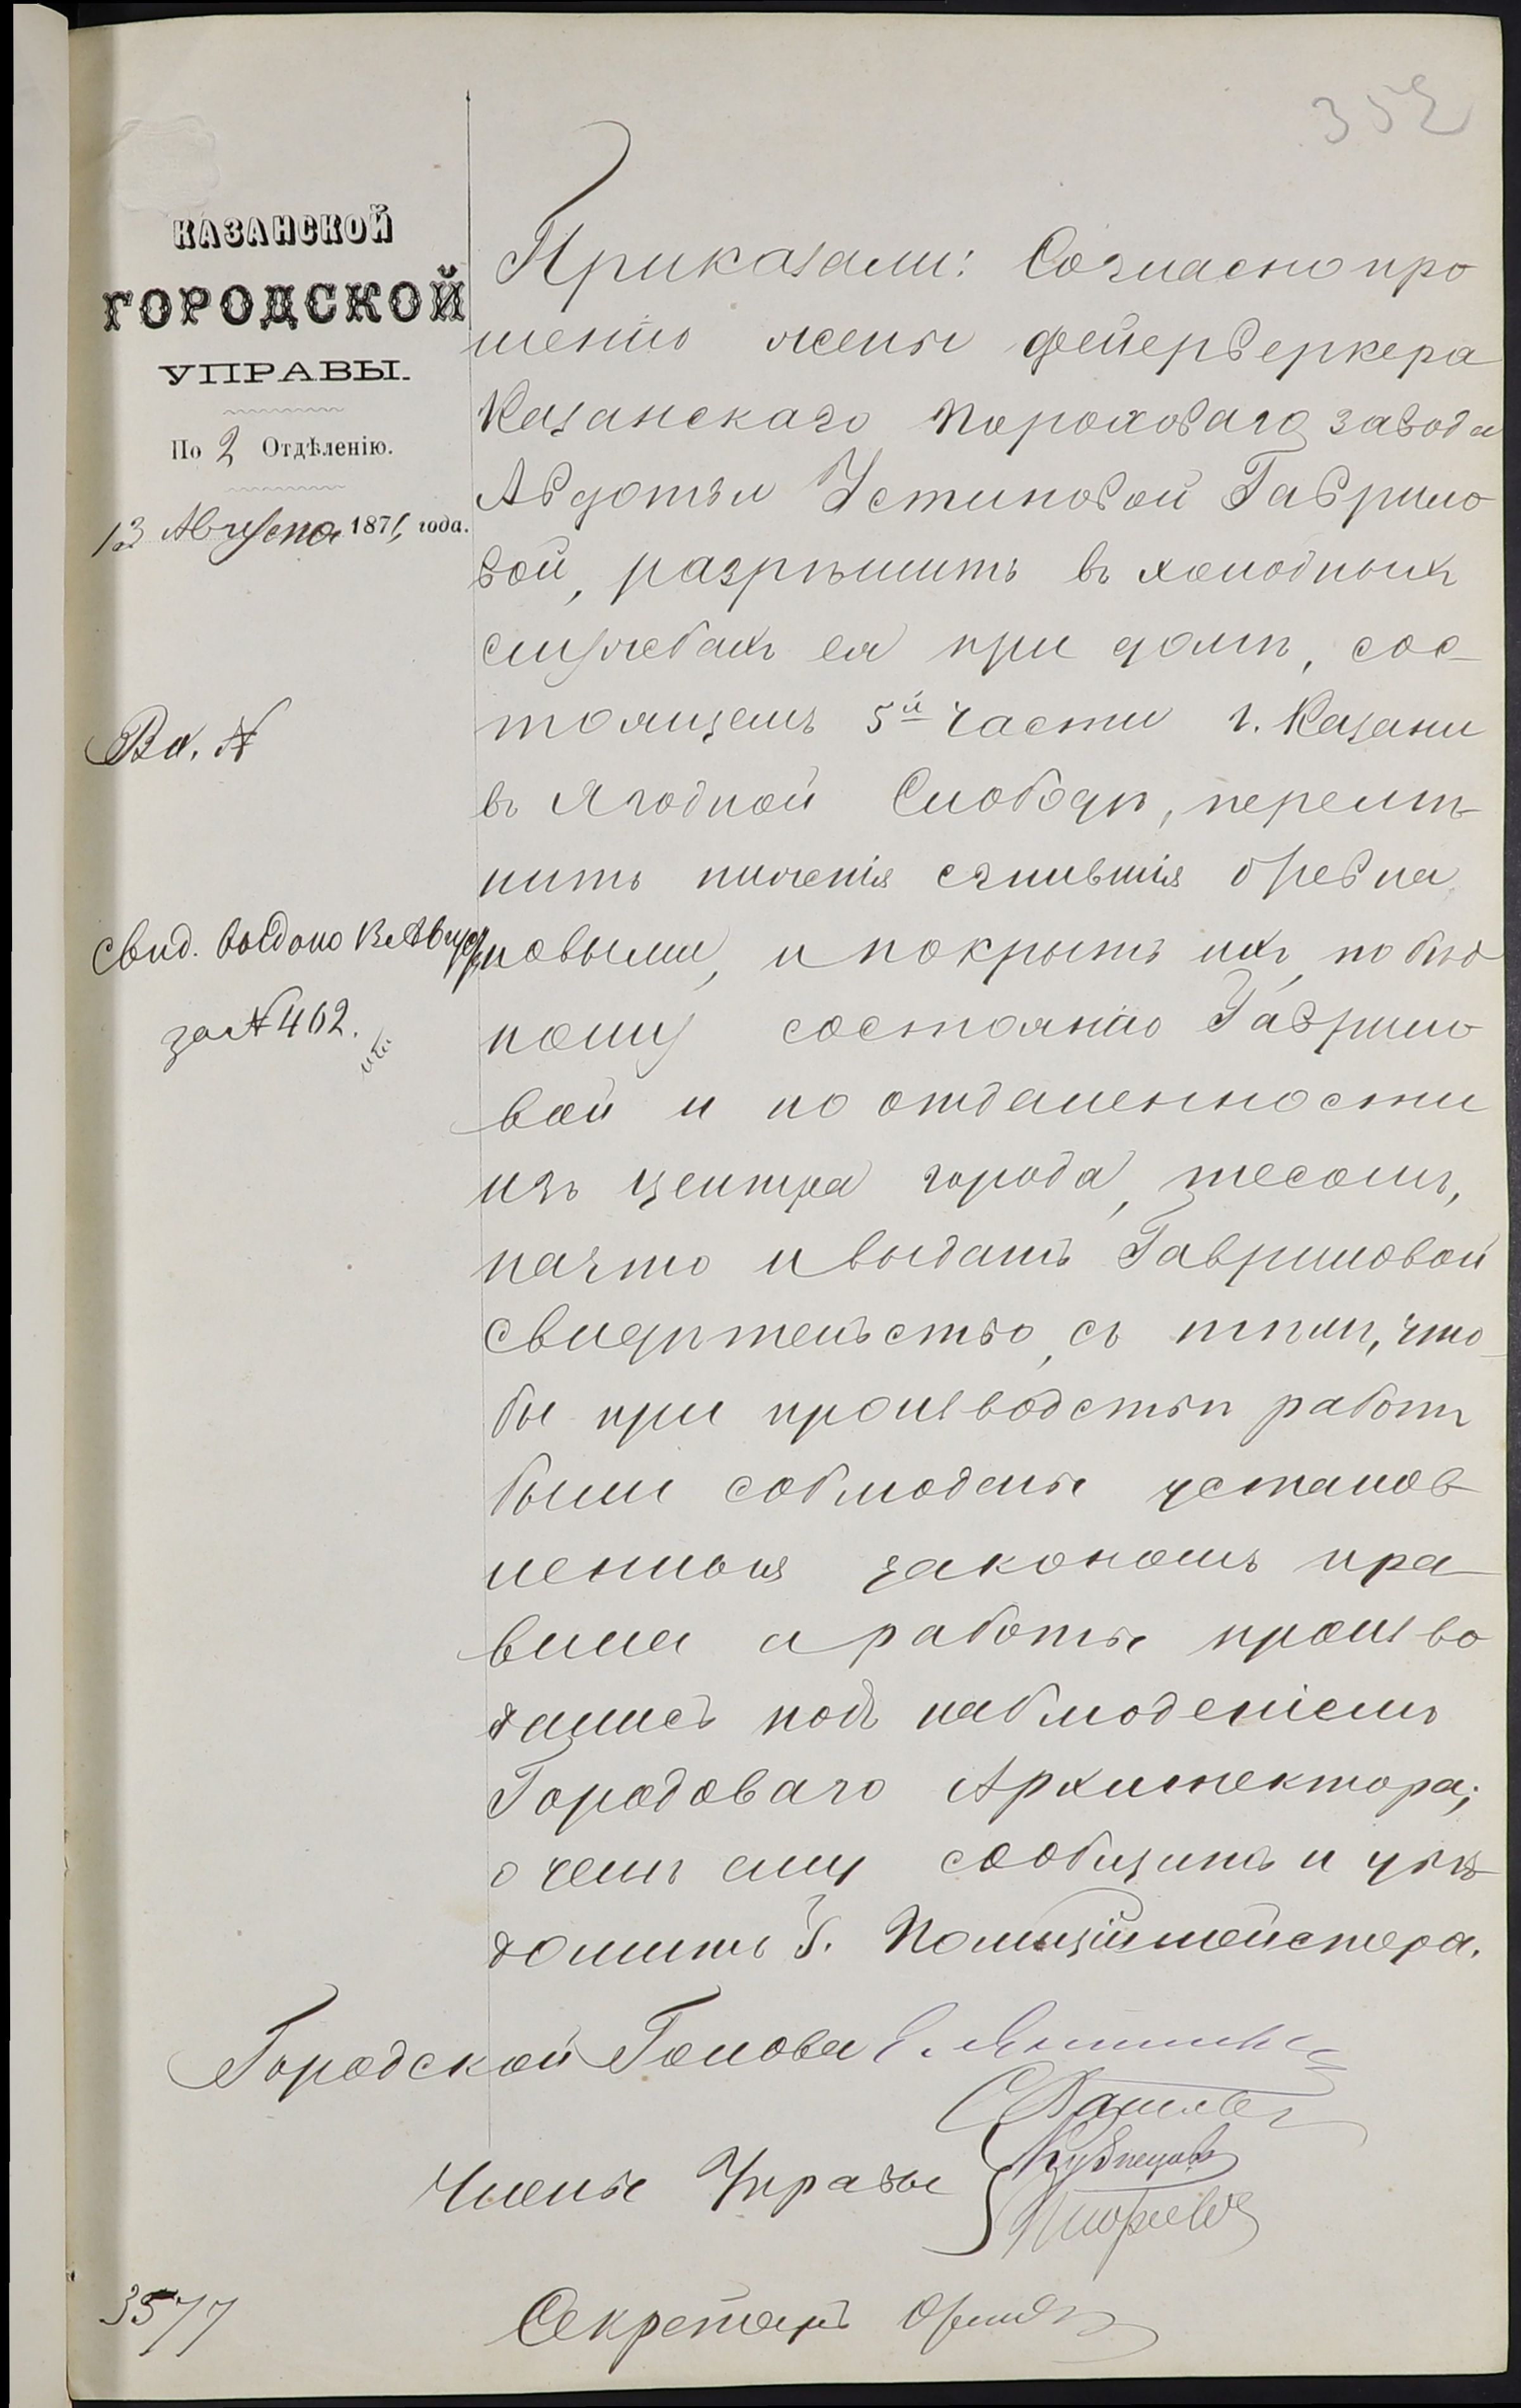 352
КАЗАНСКОЙ
ГОРОДСКОЙ
УПРАВЫ.
По 2 Отдѣленію.
13 Августа 1871 года.
Вх. №
Свид. выдано 13 Август
за № 462.
Приказали: Согласно про
шенію жены фейерверкера
Казанскаго Пороховаго завода
Авдотьи Устиновой Гаврило
вой, разрѣшить въ холодныхъ
службахъ ея при домѣ, сос-
тоящемъ 5й части г. Казани
въ Ягодной Слободѣ, перемѣ-
нить нижнія сгнившія бревна
новыми, и покрыть ихъ, по бѣд
ному состоянію Гаврило
вой и по отдаленности
изъ центра города, тесомъ,
на что и выдать Гавриловой
Свидѣтельство, съ тѣмъ, что-
бы при производствѣ работъ
были соблюдены установ-
ленныя закономъ пра-
вила а работы произво
дились подъ наблюденіемъ
Городоваго Архитектора;
о чемъ ему сообщить и увѣ-
домить Г. Полиціймейстера.
Городской Голова
Члены Управы
Кузнецовъ
Секретарь
3577